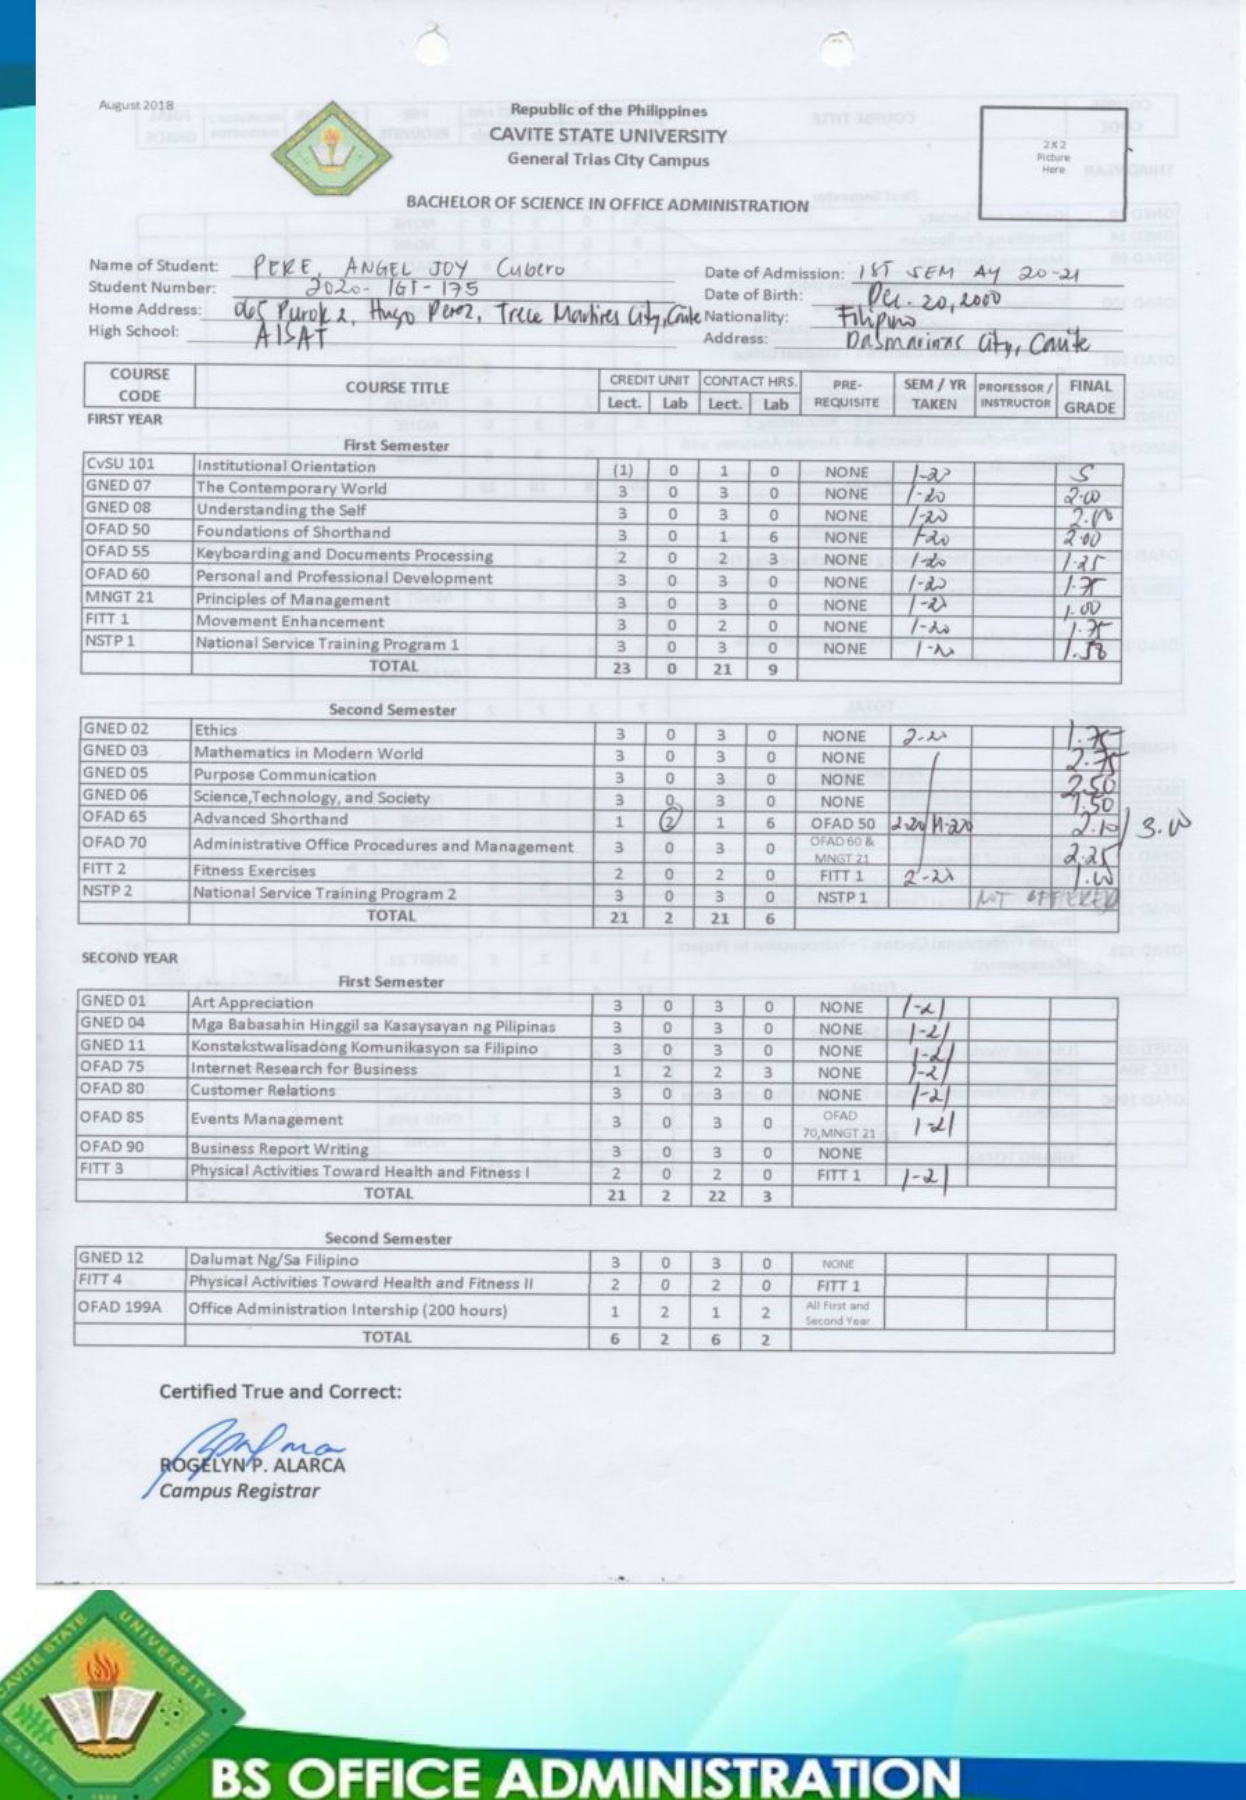 August 2018
Republic of the Philippines
CAVITE STATE UNIVERSITY
General Trias City Campus
2 X 2
Picture
Here
BACHELOR OF SCIENCE IN OFFICE ADMINISTRATION
Name of Student: PERE, ANGEL JOY Cubero Date of Admission: 1ST SEM AY 20-21
Student Number: 2020-IGT-175 Date of Birth: Dec. 20, 2000
Home Address: 065 Purok 2, Hugo Perez, Trece Martires City, Cavite Nationality: Filipino
High School: AISAT Address: Dasmarinas City, Cavite
COURSE CODE COURSE TITLE CREDIT UNIT CONTACT HRS. PRE-REQUISITE SEM / YR TAKEN PROFESSOR / INSTRUCTOR FINAL GRADE
Lect. Lab Lect. Lab
FIRST YEAR
First Semester
CvSU 101 Institutional Orientation (1) 0 1 0 NONE 1-20 S
GNED 07 The Contemporary World 3 0 3 0 NONE 1-20 2.00
GNED 08 Understanding the Self 3 0 3 0 NONE 1-20 2.00
OFAD 50 Foundations of Shorthand 3 0 1 6 NONE 1-20 2.00
OFAD 55 Keyboarding and Documents Processing 2 0 2 3 NONE 1-20 1.25
OFAD 60 Personal and Professional Development 3 0 3 0 NONE 1-20 1.75
MNGT 21 Principles of Management 3 0 3 0 NONE 1-20 1.00
FITT 1 Movement Enhancement 3 0 2 0 NONE 1-20 1.75
NSTP 1 National Service Training Program 1 3 0 3 0 NONE 1-20
TOTAL 23 0 21 9
Second Semester
GNED 02 Ethics 3 0 3 0 NONE 2-20 1.75
GNED 03 Mathematics in Modern World 3 0 3 0 NONE 2.75
GNED 05 Purpose Communication 3 0 3 0 NONE 2.50
GNED 06 Science,Technology, and Society 3 0 3 0 NONE 1.50
OFAD 65 Advanced Shorthand 1 2 1 6 OFAD 50 2-20 3.00
OFAD 70 Administrative Office Procedures and Management 3 0 3 0 OFAD 60 & MNGT 21 2.25
FITT 2 Fitness Exercises 2 0 2 0 FITT 1 2-20 1.00
NSTP 2 National Service Training Program 2 3 0 3 0 NSTP 1 NOT OFFERED
TOTAL 21 2 21 6
SECOND YEAR
First Semester
GNED 01 Art Appreciation 3 0 3 0 NONE 1-21
GNED 04 Mga Babasahin Hinggil sa Kasaysayan ng Pilipinas 3 0 3 0 NONE 1-21
GNED 11 Konstekstwalisadong Komunikasyon sa Filipino 3 0 3 0 NONE 1-21
OFAD 75 Internet Research for Business 1 2 2 3 NONE 1-21
OFAD 80 Customer Relations 3 0 3 0 NONE 1-21
OFAD 85 Events Management 3 0 3 0 OFAD 70,MNGT 21 1-21
OFAD 90 Business Report Writing 3 0 3 0 NONE
FITT 3 Physical Activities Toward Health and Fitness I 2 0 2 0 FITT 1 1-21
TOTAL 21 2 22 3
Second Semester
GNED 12 Dalumat Ng/Sa Filipino 3 0 3 0 NONE
FITT 4 Physical Activities Toward Health and Fitness II 2 0 2 0 FITT 1
OFAD 199A Office Administration Intership (200 hours) 1 2 1 2 All First and Second Year
TOTAL 6 2 6 2
Certified True and Correct:
ROGELYN P. ALARCA
Campus Registrar
CAVITE STATE UNIVERSITY
CAVITE PHILIPPINES
BS OFFICE ADMINISTRATION